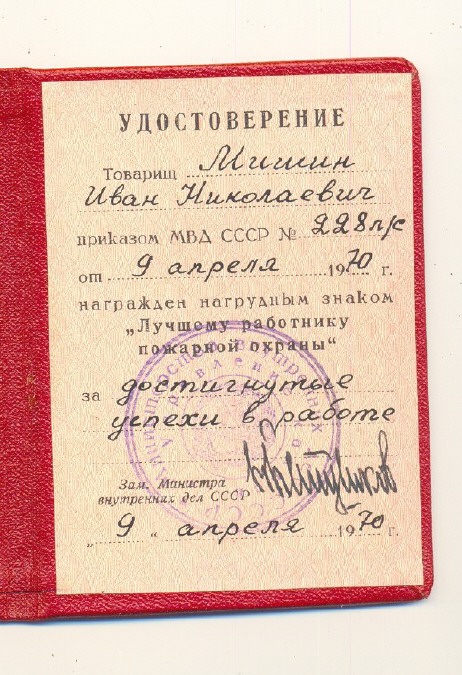 УДОСТОВЕРЕНИЕ
Товарищ Мишин
Иван Николаевич
приказом МВД СССР № 228 л/с
от 9 апреля 1970 г.
награжден нагрудным знаком
„Лучшему работнику
пожарной охраны“
за достигнутые
успехи в работе
Зам. Министра
внутренних дел СССР
„ 9 „ апреля 1970 г.